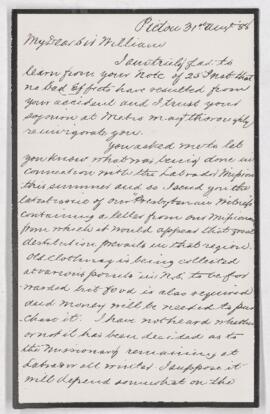 Pictou 31st Augt 88
My Dear Sir William
I am truly glad to
learn from your Note of 25 Inst that
no bad Effects have resulted from
your accident and I trust your
sojourn at Metis may thoroughly
reinvigorate you.
You asked me to let
you know what was being done in
connection with the Labrador Mission
this summer and so I send you the
latest issue of our "Presbyterian Witness"
containing a letter from our Missionary
from which it would appear that great
destitution prevails in that region.
Old clothing is being collected
at various points in N.S. to be for
warded but food is also required
and money will be needed to pur
chase it. I have not heard whether
or not it has been decided as to
the Missionary remaining at
Labrador all winter I suppose it
will depend somewhat on the